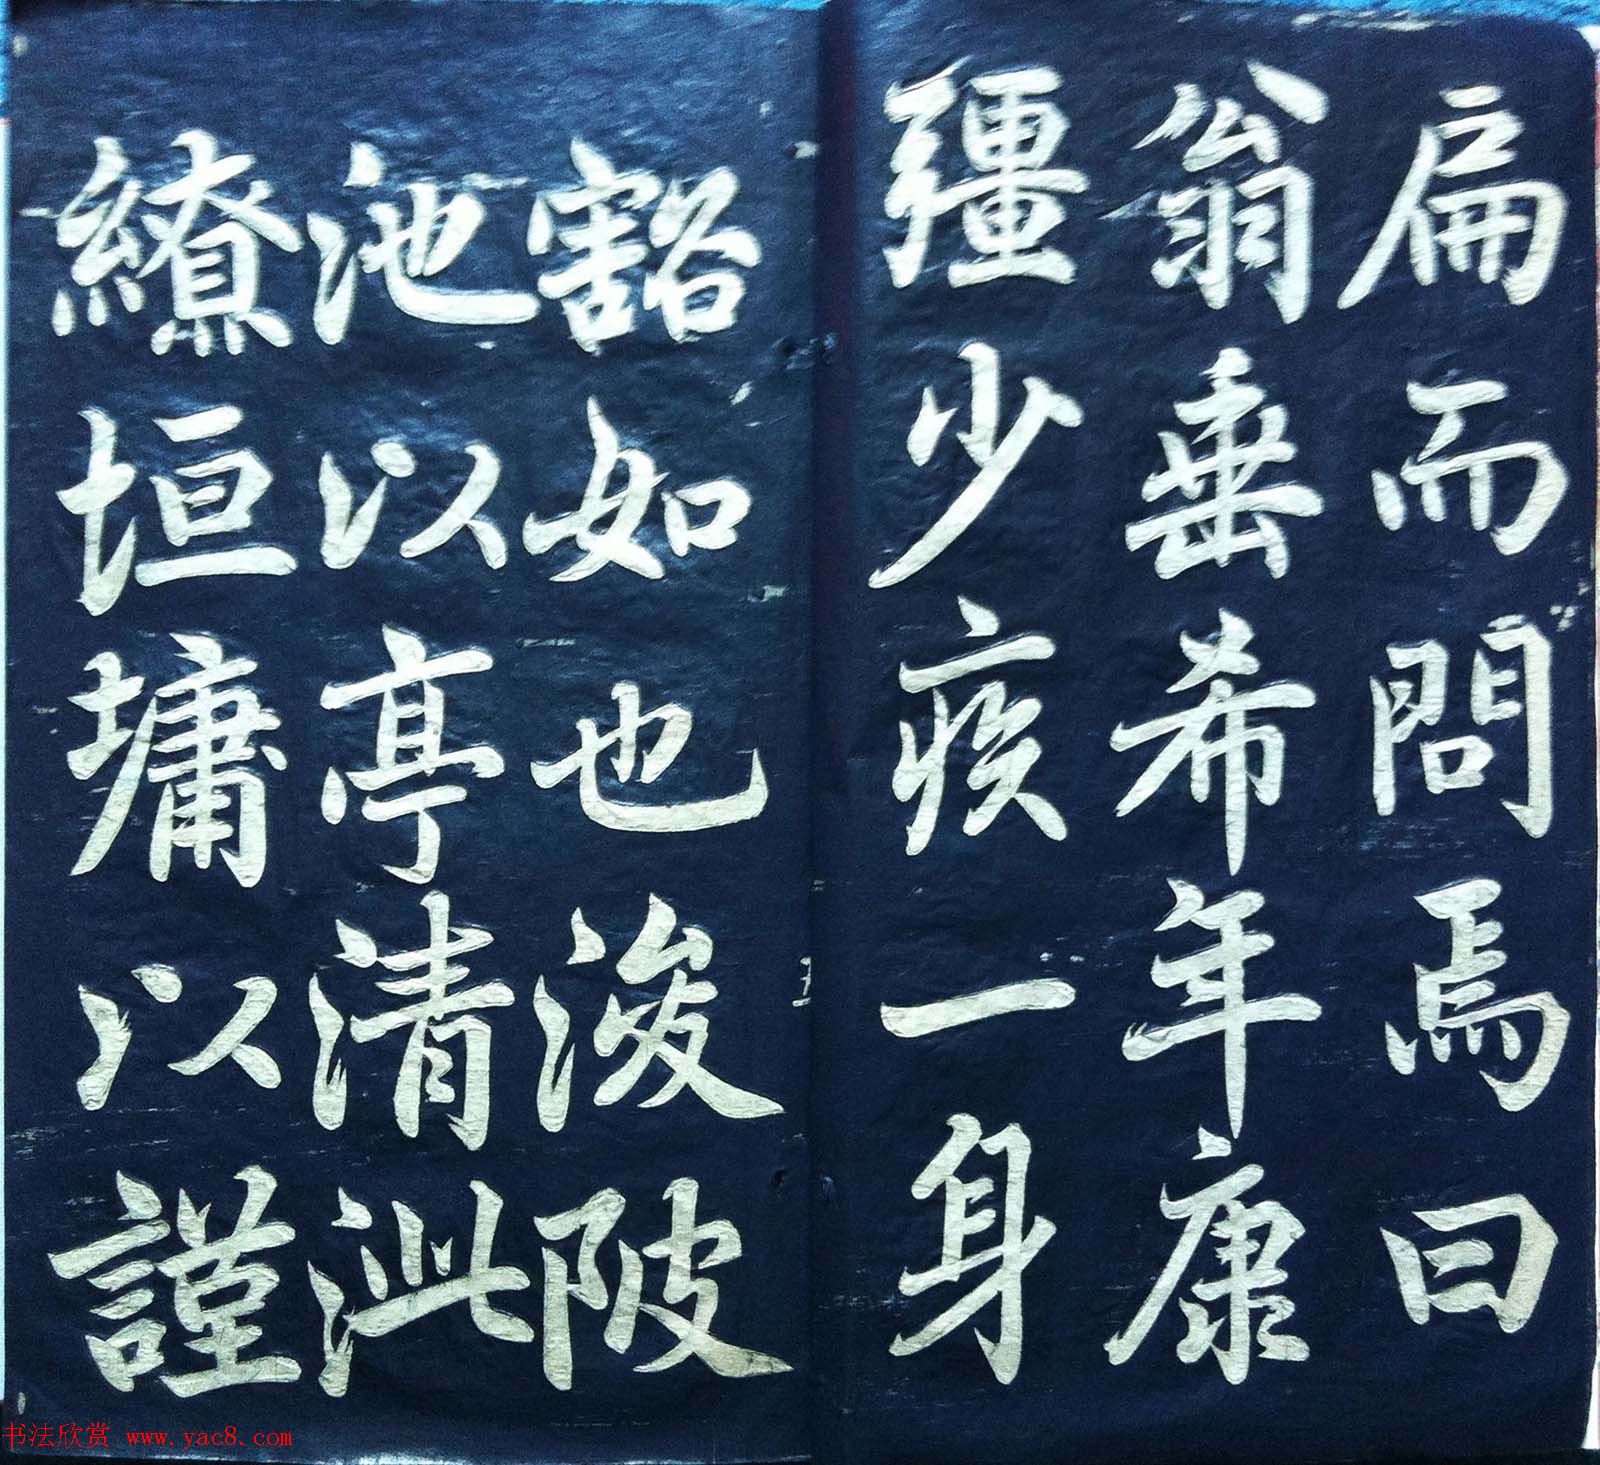 扁而問焉曰
翁垂希年康
彊少疾一身
豁如也浚陂
池以亭清泚
繚垣墉以謹
书法欣赏 www.yac8.com